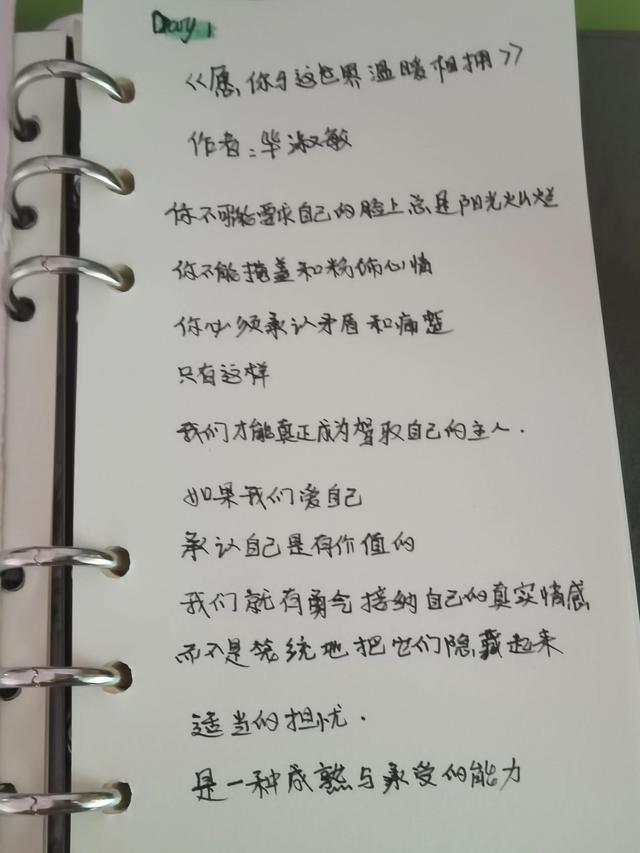 Diary 1
《愿你与这世界温暖相拥》
作者:毕淑敏
你不可能要求自己的脸上总是阳光灿烂
你不能掩盖和粉饰心情
你必须承认矛盾和痛楚
只有这样
我们才能真正成为驾驭自己的主人.
如果我们爱自己
承认自己是有价值的
我们就有勇气接纳自己的真实情感
而不是笼统地把它们隐藏起来
适当的担忧.
是一种成熟与承受的能力